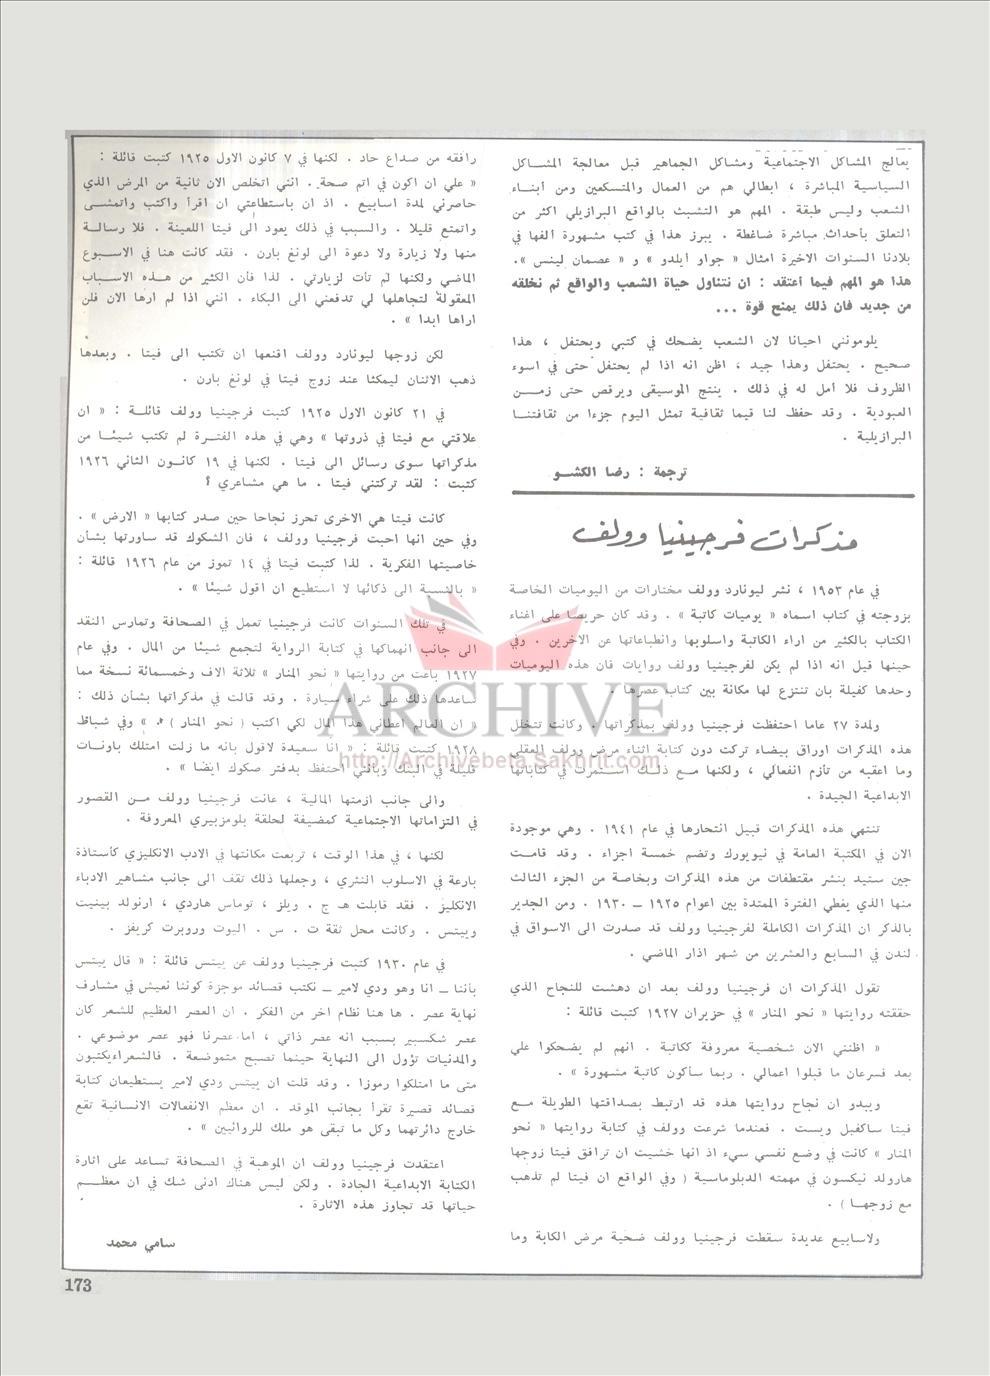 يعالج المشاكل الاجتماعية ومشاكل الجماهير قبل معالجة المشاكل
السياسية المباشرة ، ابطالي هم من العمال والمتسكعين ومن أبناء
الشعب وليس طبقة . المهم هو التشبث بالواقع البرازيلي اكثر من
التعلق بأحداث مباشرة ضاغطة . يبرز هذا في كتب مشهورة ألفها في
بلادنا السنوات الاخيرة امثال « جواو أيلدو » و « عصمان لينس ».
هذا هو المهم فيما أعتقد : ان نتناول حياة الشعب والواقع ثم نخلقه
من جديد فان ذلك يمنح قوة ...
يلومونني احيانا لان الشعب يضحك في كتبي ويحتفل ، هذا
صحيح . يحتفل وهذا جيد ، اظن انه اذا لم يحتفل حتى في اسوء
الظروف فلا أمل له في ذلك . ينتج الموسيقى ويرقص حتى زمن
العبودية . وقد حفظ لنا قيما ثقافية تمثل اليوم جزءا من ثقافتنا
البرازيلية .
ترجمة : رضا الكشو
مذكرات فرجينيا وولف
في عام ١٩٥٣ ، نشر ليونارد وولف مختارات من اليوميات الخاصة
بزوجته في كتاب اسماه « يوميات كاتبة » . وقد كان حريصا على اغناء
الكتاب بالكثير من اراء الكاتبة واسلوبها وانطباعاتها عن الاخرين . وفي
حينها قيل انه اذا لم يكن لفرجينيا وولف روايات فان هذه اليوميات
وحدها كفيلة بان تنتزع لها مكانة بين كتاب عصرها .
ولمدة ٢٧ عاما احتفظت فرجينيا وولف بمذكراتها . وكانت تتخلل
هذه المذكرات اوراق بيضاء تركت دون كتابة اثناء مرض وولف العقلي
وما اعقبه من تأزم انفعالي ، ولكنها مع ذلك استمرت في كتاباتها
الابداعية الجيدة .
تنتهي هذه المذكرات قبيل انتحارها في عام ١٩٤١ . وهي موجودة
الان في المكتبة العامة في نيويورك وتضم خمسة اجزاء . وقد قامت
جين ستيد بنشر مقتطفات من هذه المذكرات وبخاصة من الجزء الثالث
منها الذي يغطي الفترة الممتدة بين اعوام ١٩٢٥ ــ ١٩٣٠ . ومن الجدير
بالذكر ان المذكرات الكاملة لفرجينيا وولف قد صدرت الى الاسواق في
لندن في السابع والعشرين من شهر اذار الماضي .
تقول المذكرات ان فرجينيا وولف بعد ان دهشت للنجاح الذي
حققته روايتها « نحو المنار » في حزيران ١٩٢٧ كتبت قائلة :
« اظنني الان شخصية معروفة ككاتبة . انهم لم يضحكوا علي
بعد فسرعان ما قبلوا اعمالي . ربما سأكون كاتبة مشهورة » .
ويبدو ان نجاح روايتها هذه قد ارتبط بصداقتها الطويلة مع
فيتا ساكفيل ويست . فعندما شرعت وولف في كتابة روايتها « نحو
المنار » كانت في وضع نفسي سيء اذ انها خشيت ان ترافق فيتا زوجها
هارولد نيكسون في مهمته الدبلوماسية ( وفي الواقع ان فيتا لم تذهب
مع زوجها ) .
ولاسابيع عديدة سقطت فرجينيا وولف ضحية مرض الكابة وما
رافقه من صداع حاد . لكنها في ٧ كانون الاول ١٩٢٥ كتبت قائلة :
« علي ان اكون في اتم صحة . انني اتخلص الان ثانية من المرض الذي
حاصرني لمدة اسابيع . اذ ان باستطاعتي ان اقرأ واكتب واتمشى
واتمتع قليلا . والسبب في ذلك يعود الى فيتا اللعينة . فلا رسالة
منها ولا زيارة ولا دعوة الى لونغ بارن . فقد كانت هنا في الاسبوع
الماضي ولكنها لم تأت لزيارتي . لذا فأن الكثير من هذه الاسباب
المعقولة لتجاهلها لي تدفعني الى البكاء . انني اذا لم ارها الان فلن
اراها ابدا » .
لكن زوجها ليونارد وولف اقنعها ان تكتب الى فيتا . وبعدها
ذهب الاثنان ليمكثا عند زوج فيتا في لونغ بارن .
في ٢١ كانون الاول ١٩٢٥ كتبت فرجينيا وولف قائلة : « ان
علاقتي مع فيتا في ذروتها » وهي في هذه الفترة لم تكتب شيئا من
مذكراتها سوى رسائل الى فيتا . لكنها في ١٩ كانون الثاني ١٩٢٦
كتبت : لقد تركتني فيتا . ما هي مشاعري ؟
كانت فيتا هي الاخرى تحرز نجاحا حين صدر كتابها « الارض » .
وفي حين انها احبت فرجينيا وولف ، فان الشكوك قد ساورتها بشأن
خاصيتها الفكرية . لذا كتبت فيتا في ١٤ تموز من عام ١٩٢٦ قائلة :
« بالنسبة الى ذكائها لا استطيع ان اقول شيئا » .
في تلك السنوات كانت فرجينيا تعمل في الصحافة وتمارس النقد
الى جانب انهماكها في كتابة الرواية لتجمع شيئا من المال . وفي عام
١٩٢٧ باعت من روايتها « نحو المنار » ثلاثة الاف وخمسمائة نسخة مما
ساعدها ذلك على شراء سيارة . وقد قالت في مذكراتها بشأن ذلك :
« ان العالم اعطاني هذا المال لكي اكتب ( نحو المنار ) » . وفي شباط
١٩٢٨ كتبت قائلة : « انا سعيدة لاقول بانه ما زلت امتلك باونات
قليلة في البنك وبأنني احتفظ بدفتر صكوك ايضا » .
والى جانب ازمتها المالية ، عانت فرجينيا وولف من القصور
في التزاماتها الاجتماعية كمضيفة لحلقة بلومزبيري المعروفة .
لكنها ، في هذا الوقت ، تربعت مكانتها في الادب الانكليزي كأستاذة
بارعة في الاسلوب النثري ، وجعلها ذلك تقف الى جانب مشاهير الادباء
الانكليز . فقد قابلت هـ ج . ويلز ، توماس هاردي ، ارنولد بينيت
وييتس . وكانت محل ثقة ت . س . اليوت وروبرت كريفز .
في عام ١٩٣٠ كتبت فرجينيا وولف عن ييتس قائلة : « قال ييتس
بأننا ــ انا وهو ودي لامير ــ نكتب قصائد موجزة كوننا نعيش في مشارف
نهاية عصر . ها هنا نظام اخر من الفكر . ان العصر العظيم للشعر كان
عصر شكسبير بسبب انه عصر ذاتي ، اما عصرنا فهو عصر موضوعي .
والمدنيات تؤول الى النهاية حينما تصبح متموضعة . فالشعراء يكتبون
متى ما امتلكوا رموزا . وقد قلت ان ييتس ودي لامير يستطيعان كتابة
قصائد قصيرة تقرأ بجانب الموقد . ان معظم الانفعالات الانسانية تقع
خارج دائرتهما وكل ما تبقى هو ملك للروائيين » .
اعتقدت فرجينيا وولف ان الموهبة في الصحافة تساعد على اثارة
الكتابة الابداعية الجادة . ولكن ليس هناك ادنى شك في ان معظم
حياتها قد تجاوز هذه الاثارة .
سامي محمد
173
ARCHIVE
http://Archivebeta.Sakhrit.com